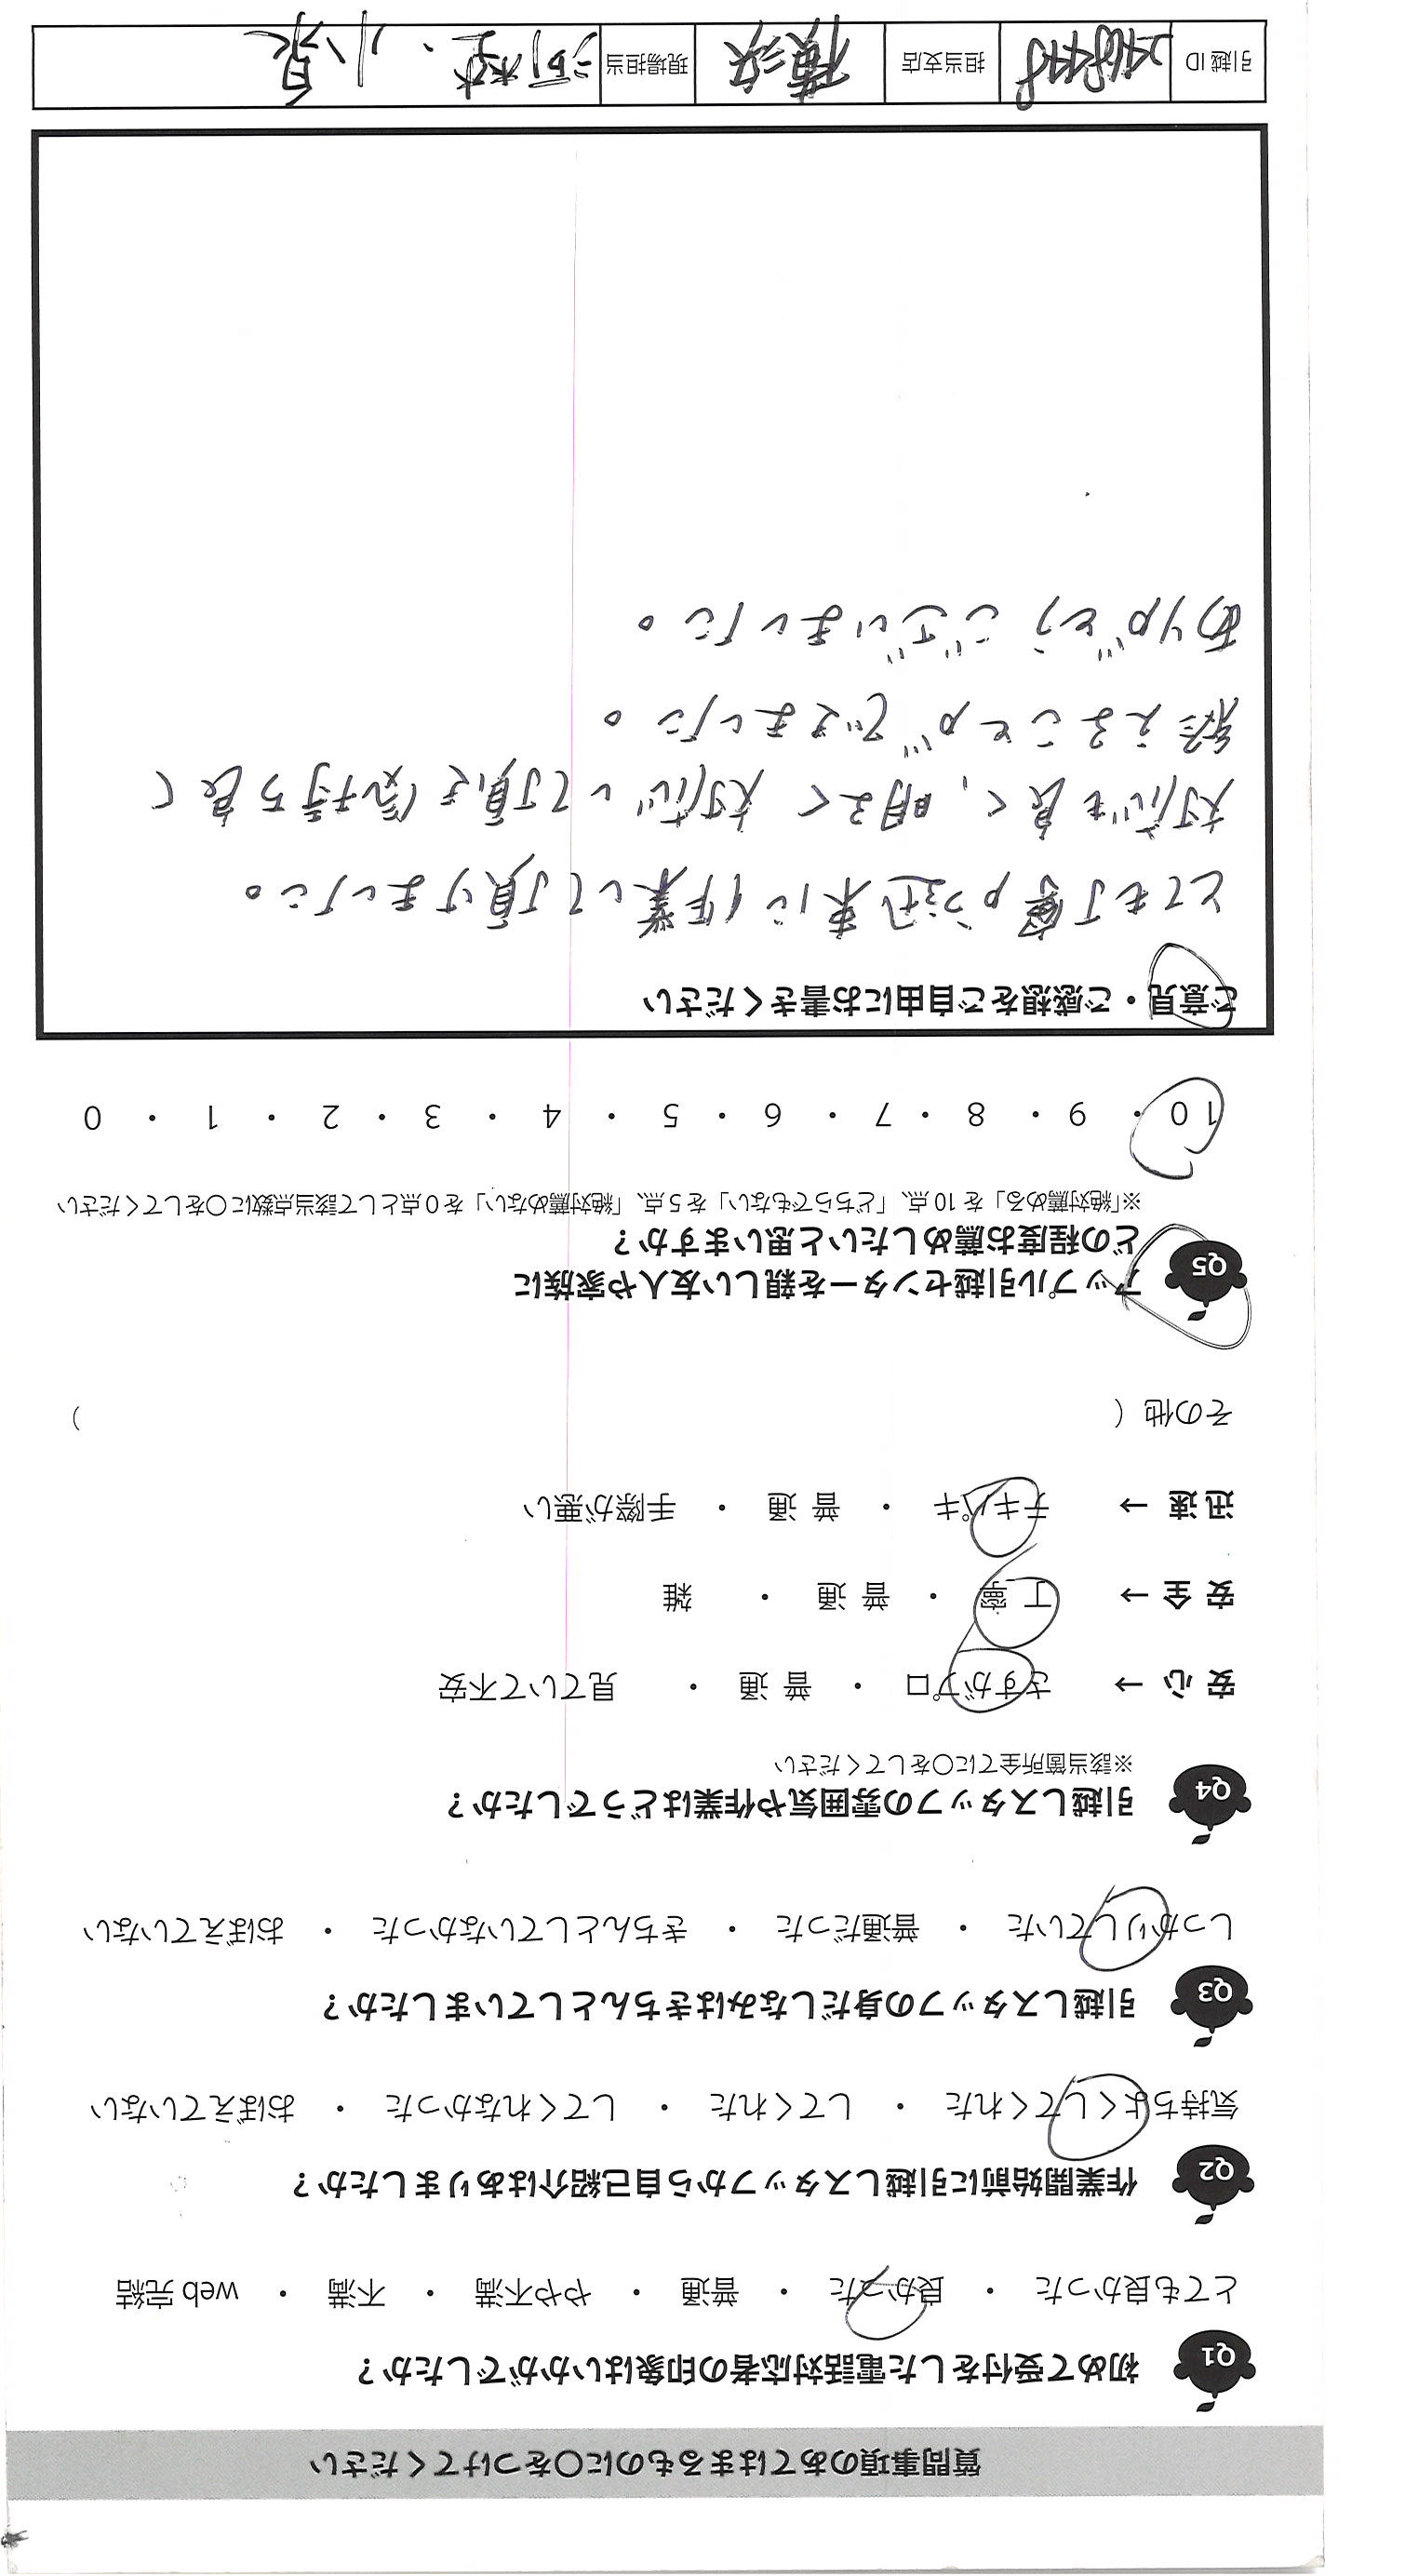 質問事項のあてはまるものに〇をつけてください
Q1 初めて受付をした電話対応者の印象はいかがでしたか？
とても良かった ・ 良かった ・ 普通 ・ やや不満 ・ 不満 ・ web 完結
Q2 作業開始前に引越しスタッフから自己紹介はありましたか？
気持ちよくしてくれた ・ してくれた ・ してくれなかった ・ おぼえていない
Q3 引越しスタッフの身だしなみはきちんとしていましたか？
しっかりしていた ・ 普通だった ・ きちんとしていなかった ・ おぼえていない
Q4 引越しスタッフの雰囲気や作業はどうでしたか？
※該当箇所全てに〇をしてください
安 心 → さすがプロ ・ 普 通 ・ 見ていて不安
安 全 → 丁 寧 ・ 普 通 ・ 雑
迅 速 → テキパキ ・ 普 通 ・ 手際が悪い
その他 ( )
Q5 アップル引越センターを親しい友人や家族に
どの程度お薦めしたいと思いますか？
※「絶対薦める」を 10 点、「どちらでもない」を 5 点、「絶対薦めない」を 0 点として該当点数に〇をしてください
10 ・ 9 ・ 8 ・ 7 ・ 6 ・ 5 ・ 4 ・ 3 ・ 2 ・ 1 ・ 0
ご意見・ご感想をご自由にお書きください
とても丁寧かつ迅速に作業して頂けました。
対応も良く、明るく対応して頂き気持ち良く
終えることができました。
ありがとうございました。
引越 ID 担当支店 横浜 現場担当 小泉